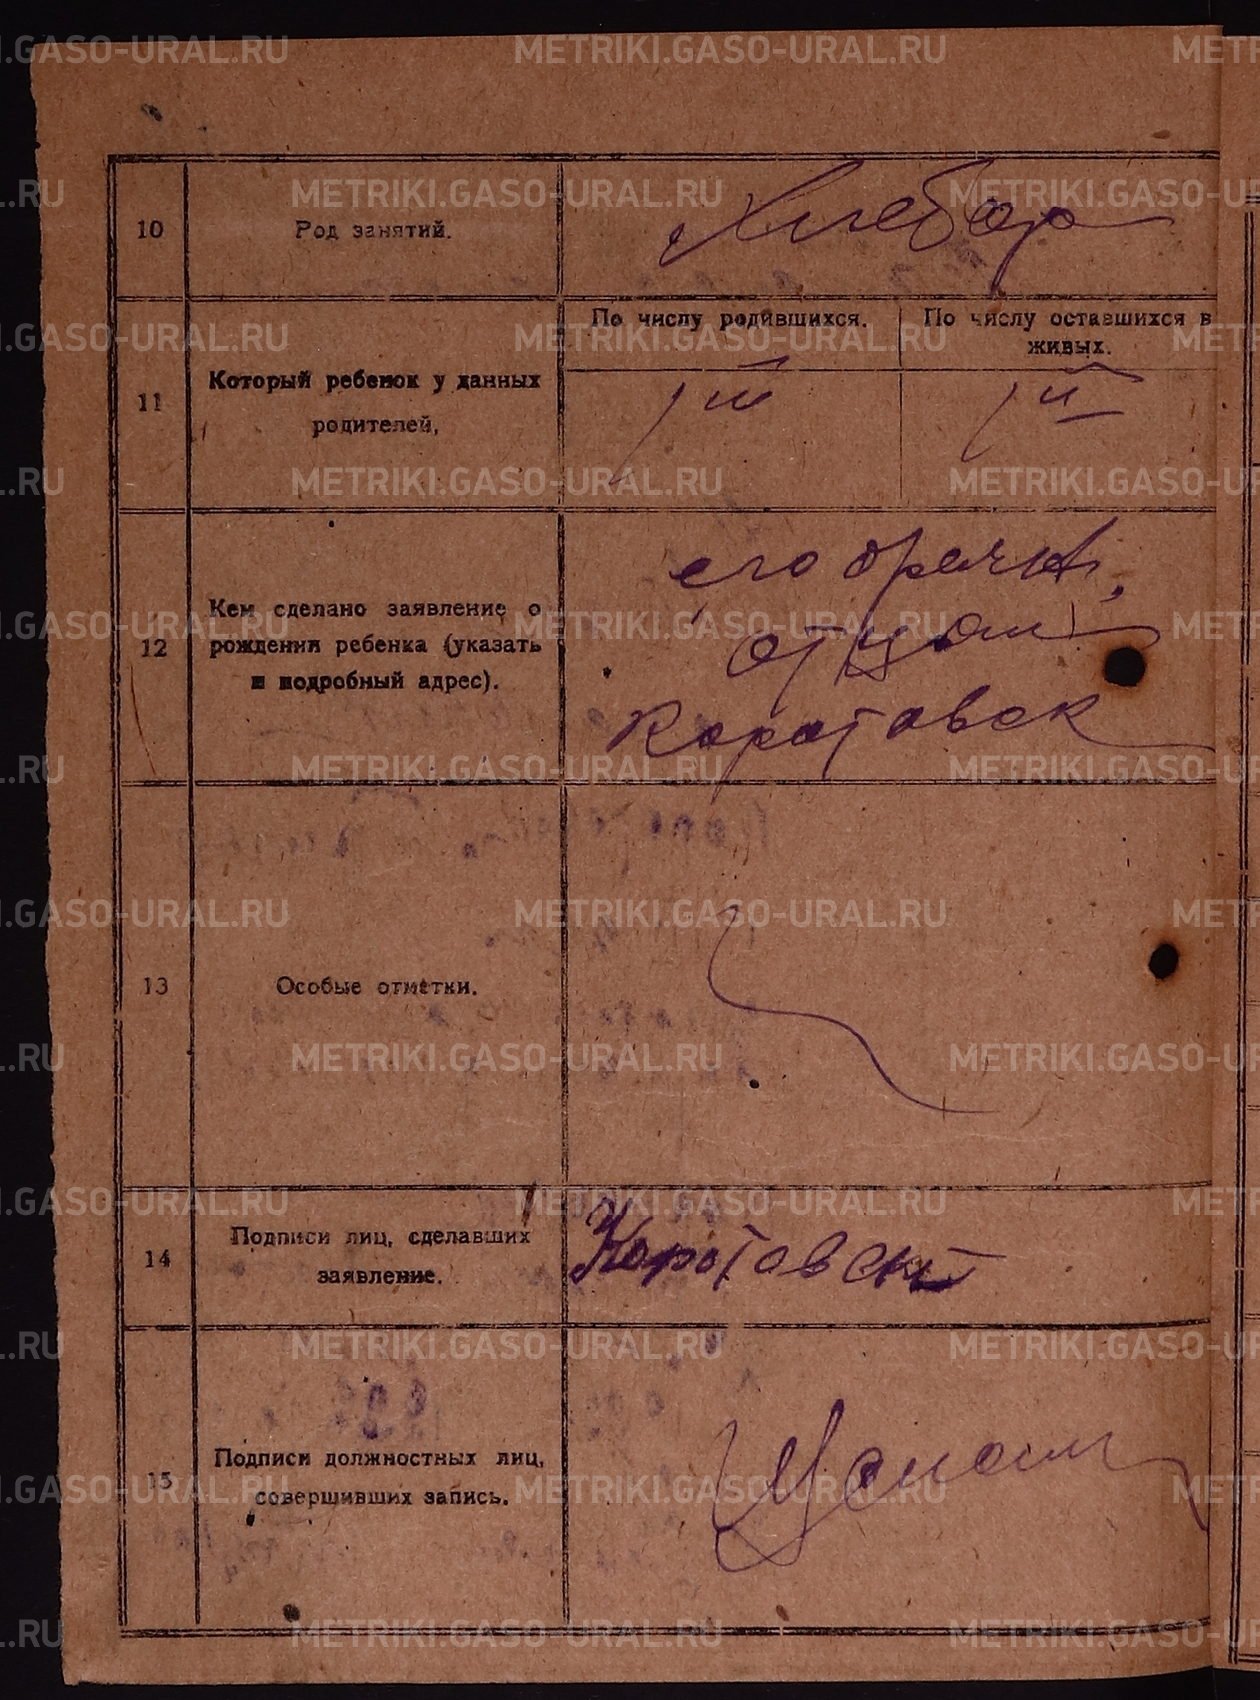 10
Род занятий.
Хлебор
11
Который ребенок у данных
родителей,
По числу родившихся.
По числу оставшихся в
живых.
1й
1й
12
Кем сделано заявление о
рождении ребенка (указать
и подробный адрес).
его брачн.
отцом
Коротовск
13
Особые отметки.
14
Подписи лиц, сделавших
заявление.
Коротовск
15
Подписи должностных лиц,
совершивших запись.
METRIKI.GASO-URAL.RU